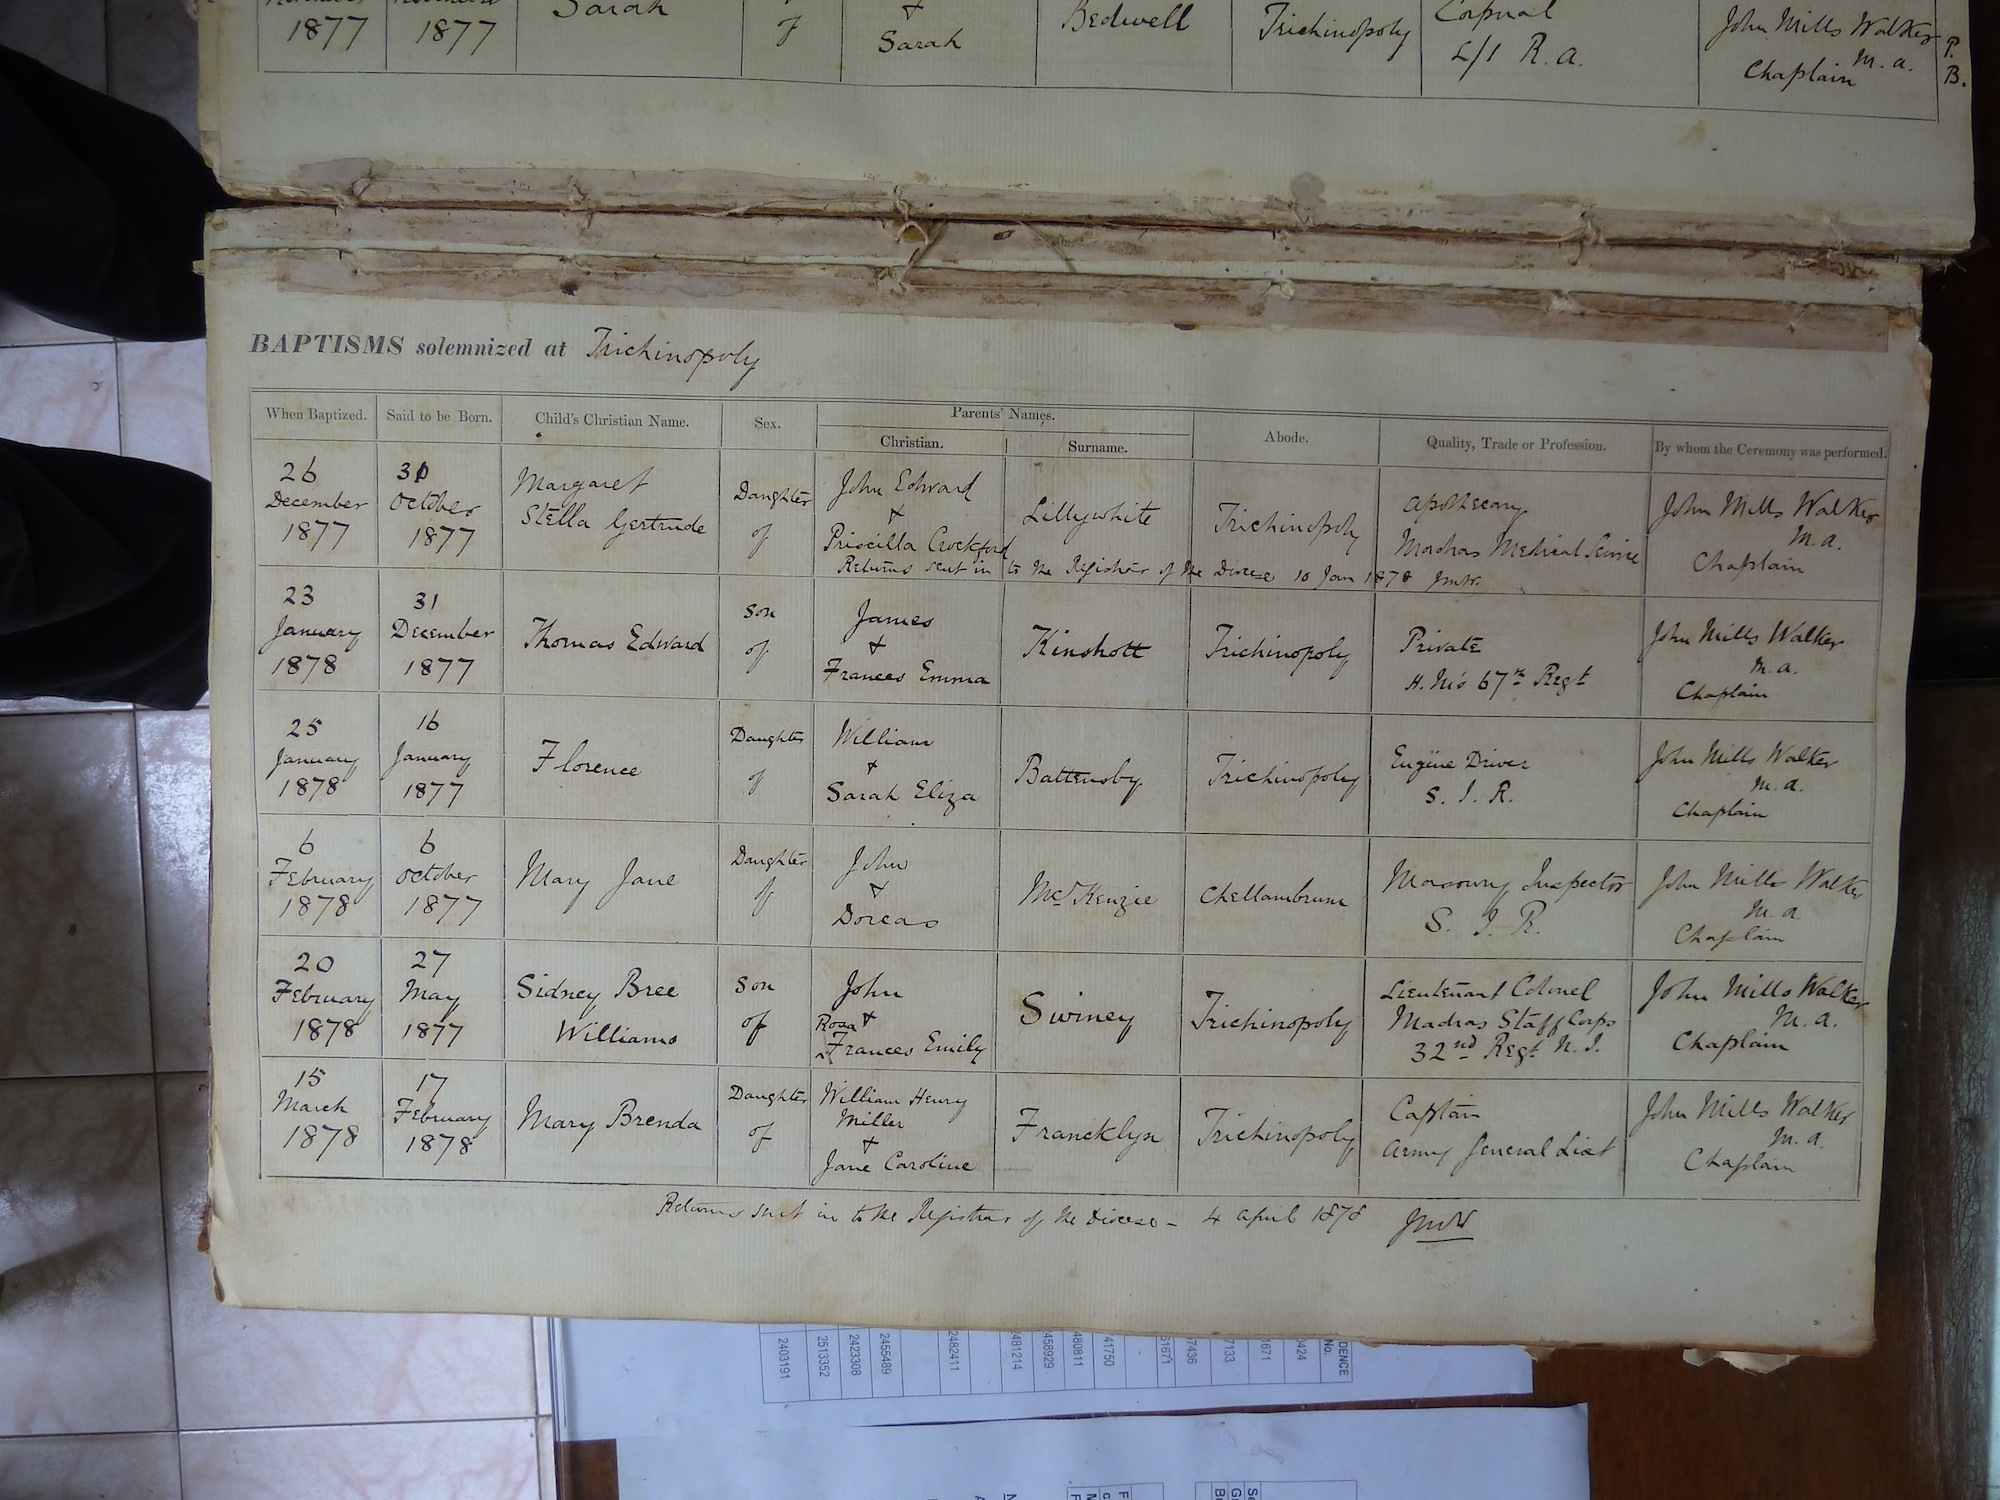 1877 1877 Sarah of & Sarah Bedwell Trichinopoly Corporal L/1 R.A. John Mills Walker M.A. Chaplain P. B.
BAPTISMS solemnized at Trichinopoly
When Baptized. Said to be Born. Child's Christian Name. Sex. Parents' Names. Abode. Quality, Trade or Profession. By whom the Ceremony was performed.
Christian. Surname.
26 December 1877
31 October 1877
Margaret
Stella Gertrude
Daughter of
John Edward
&
Priscilla Crockford
Lillywhite
Trichinopoly
Apothecary
Madras Medical Service
John Mills Walker
M.A.
Chaplain
Returns sent in to the Registrar of the Diocese 10 Jan 1878 JMW.
23
January
1878
31
December
1877
Thomas Edward
Son
of
James
&
Frances Emma
Kinshott
Trichinopoly
Private
H.M's 67th Regt
John Mills Walker
M.A.
Chaplain
25
January
1878
16
January
1877
Florence
Daughter
of
William
&
Sarah Eliza
Battensby
Trichinopoly
Engine Driver
S. I. R.
John Mills Walker
M.A.
Chaplain
6
February
1878
6
October
1877
Mary Jane
Daughter
of
John
&
Dorcas
McKenzie
Chellambrum
Masonry Inspector
S. I. R.
John Mills Walker
M.A.
Chaplain
20
February
1878
27
May
1877
Sidney Bree
Williams
Son
of
John
Rosa &
Frances Emily
Swiney
Trichinopoly
Lieutenant Colonel
Madras Staff Corps
32nd Regt N.I.
John Mills Walker
M.A.
Chaplain
15
March
1878
17
February
1878
Mary Brenda
Daughter
of
William Henry
Miller
&
Jane Caroline
Francklyn
Trichinopoly
Captain
Army General List
John Mills Walker
M.A.
Chaplain
Returns sent in to the Registrar of the Diocese - 4 April 1878 JMW
2403191
2513352
2423308
2455489
2482411
481214
458929
480811
41750
61671
47436
7133
1671
0424
DENCE
No.